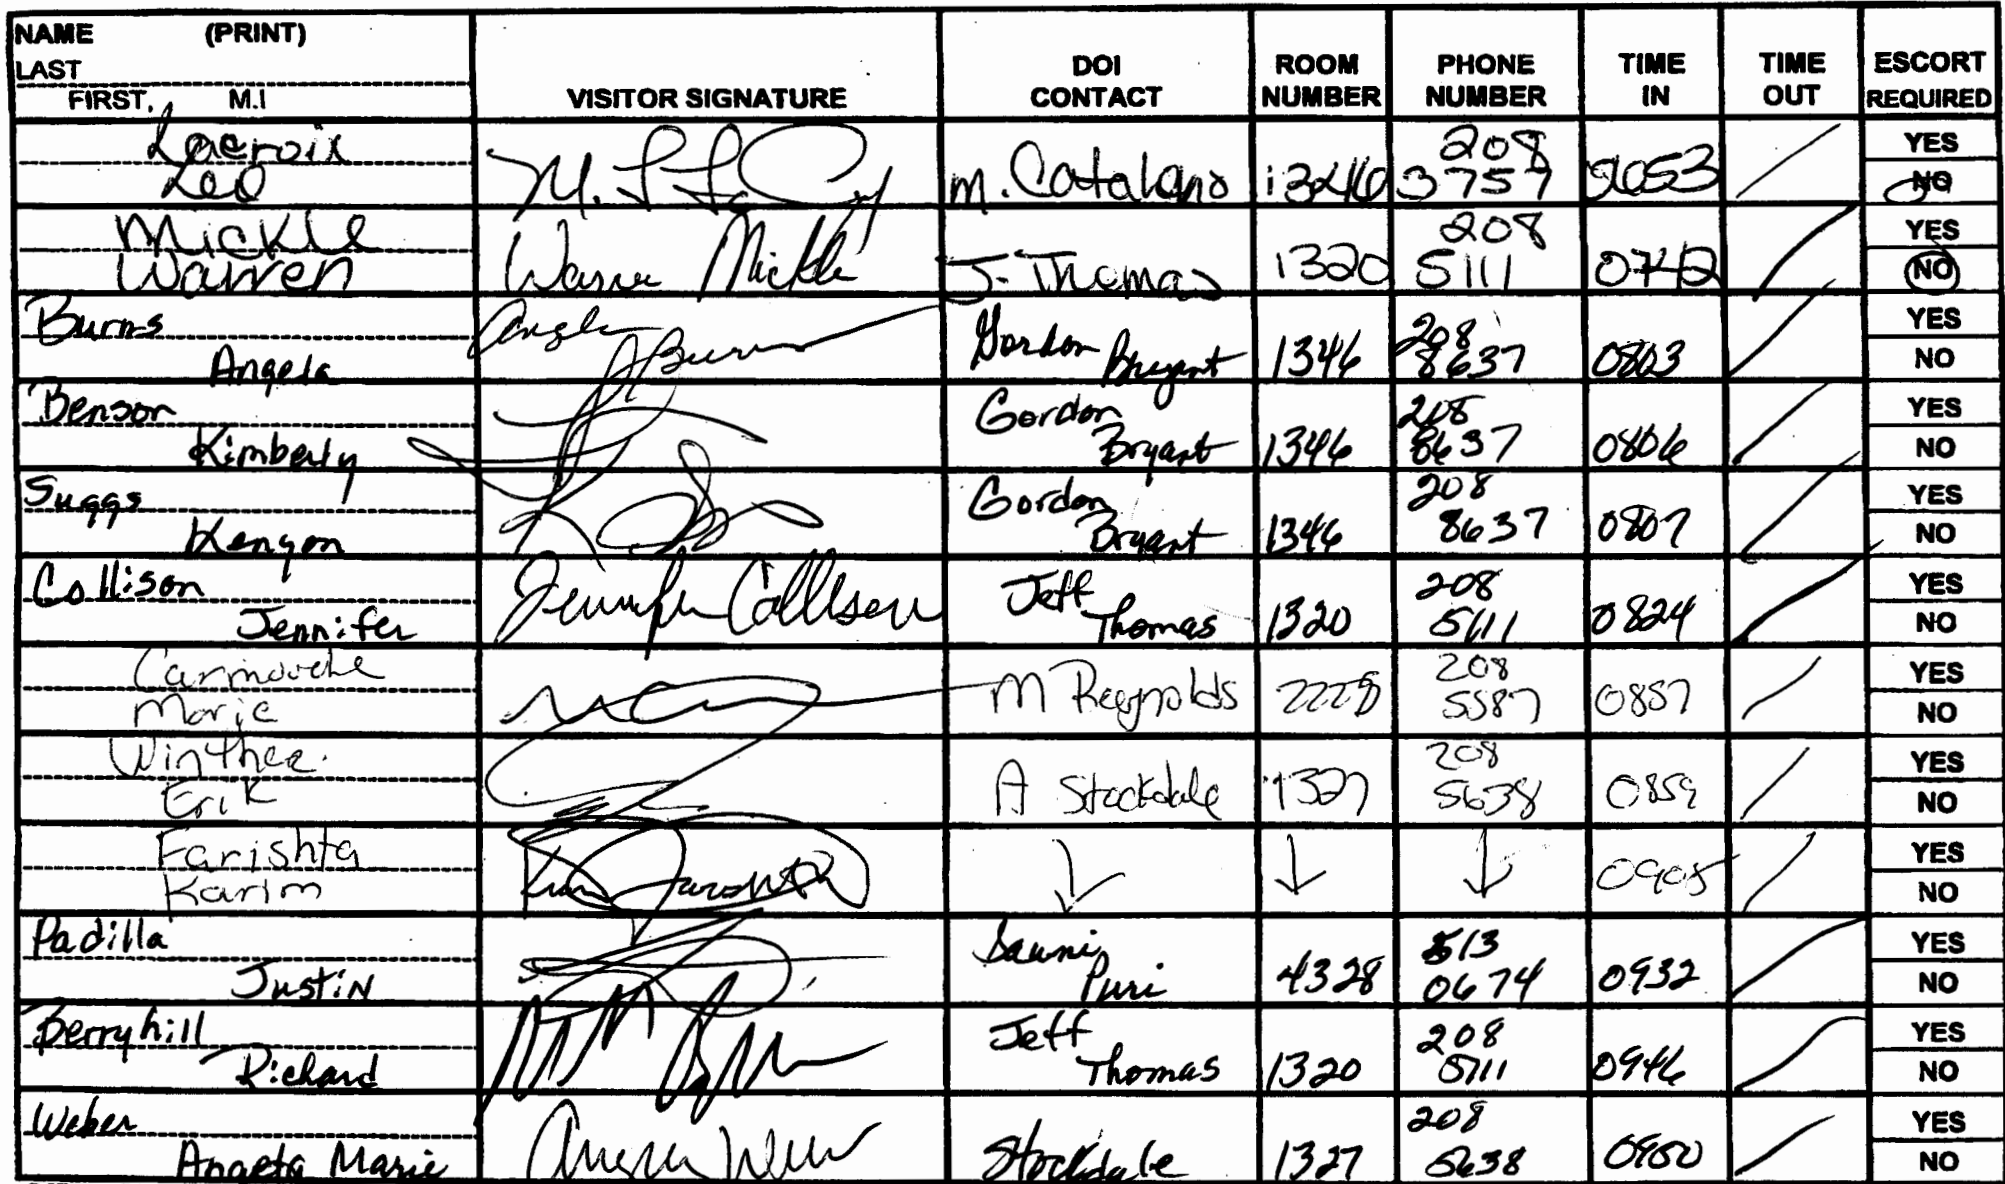 NAME (PRINT)
LAST
FIRST, M.I
VISITOR SIGNATURE
DOI CONTACT
ROOM NUMBER
PHONE NUMBER
TIME IN
TIME OUT
ESCORT REQUIRED
Lacroix
Leo
M. Catalano
208
3757
YES
NO
Mickle
Warren
Warren Mickle
J. Thomas
1320
208
5111
0742
YES
NO
Burns
Angela
Angela Burns
Gordon Bryant
1346
208
8637
0803
YES
NO
Benson
Kimberly
Gordon Bryant
1346
208
8637
0806
YES
NO
Suggs
Kenyon
Gordon Bryant
1346
208
8637
0807
YES
NO
Collison
Jennifer
Jennifer Collison
Jeff Thomas
1320
208
5111
0824
YES
NO
Carmouche
Marie
M Reynolds
2228
208
5587
0857
YES
NO
Winther
Erik
A Stockdale
1327
208
5638
0859
YES
NO
Farishta
Karim
↓
↓
↓
0905
YES
NO
Padilla
Justin
Puri
4328
513
0674
0932
YES
NO
Berryhill
Richard
Jeff Thomas
1320
208
5111
0946
YES
NO
Weber
Angela Marie
Stockdale
1327
208
5638
0950
YES
NO